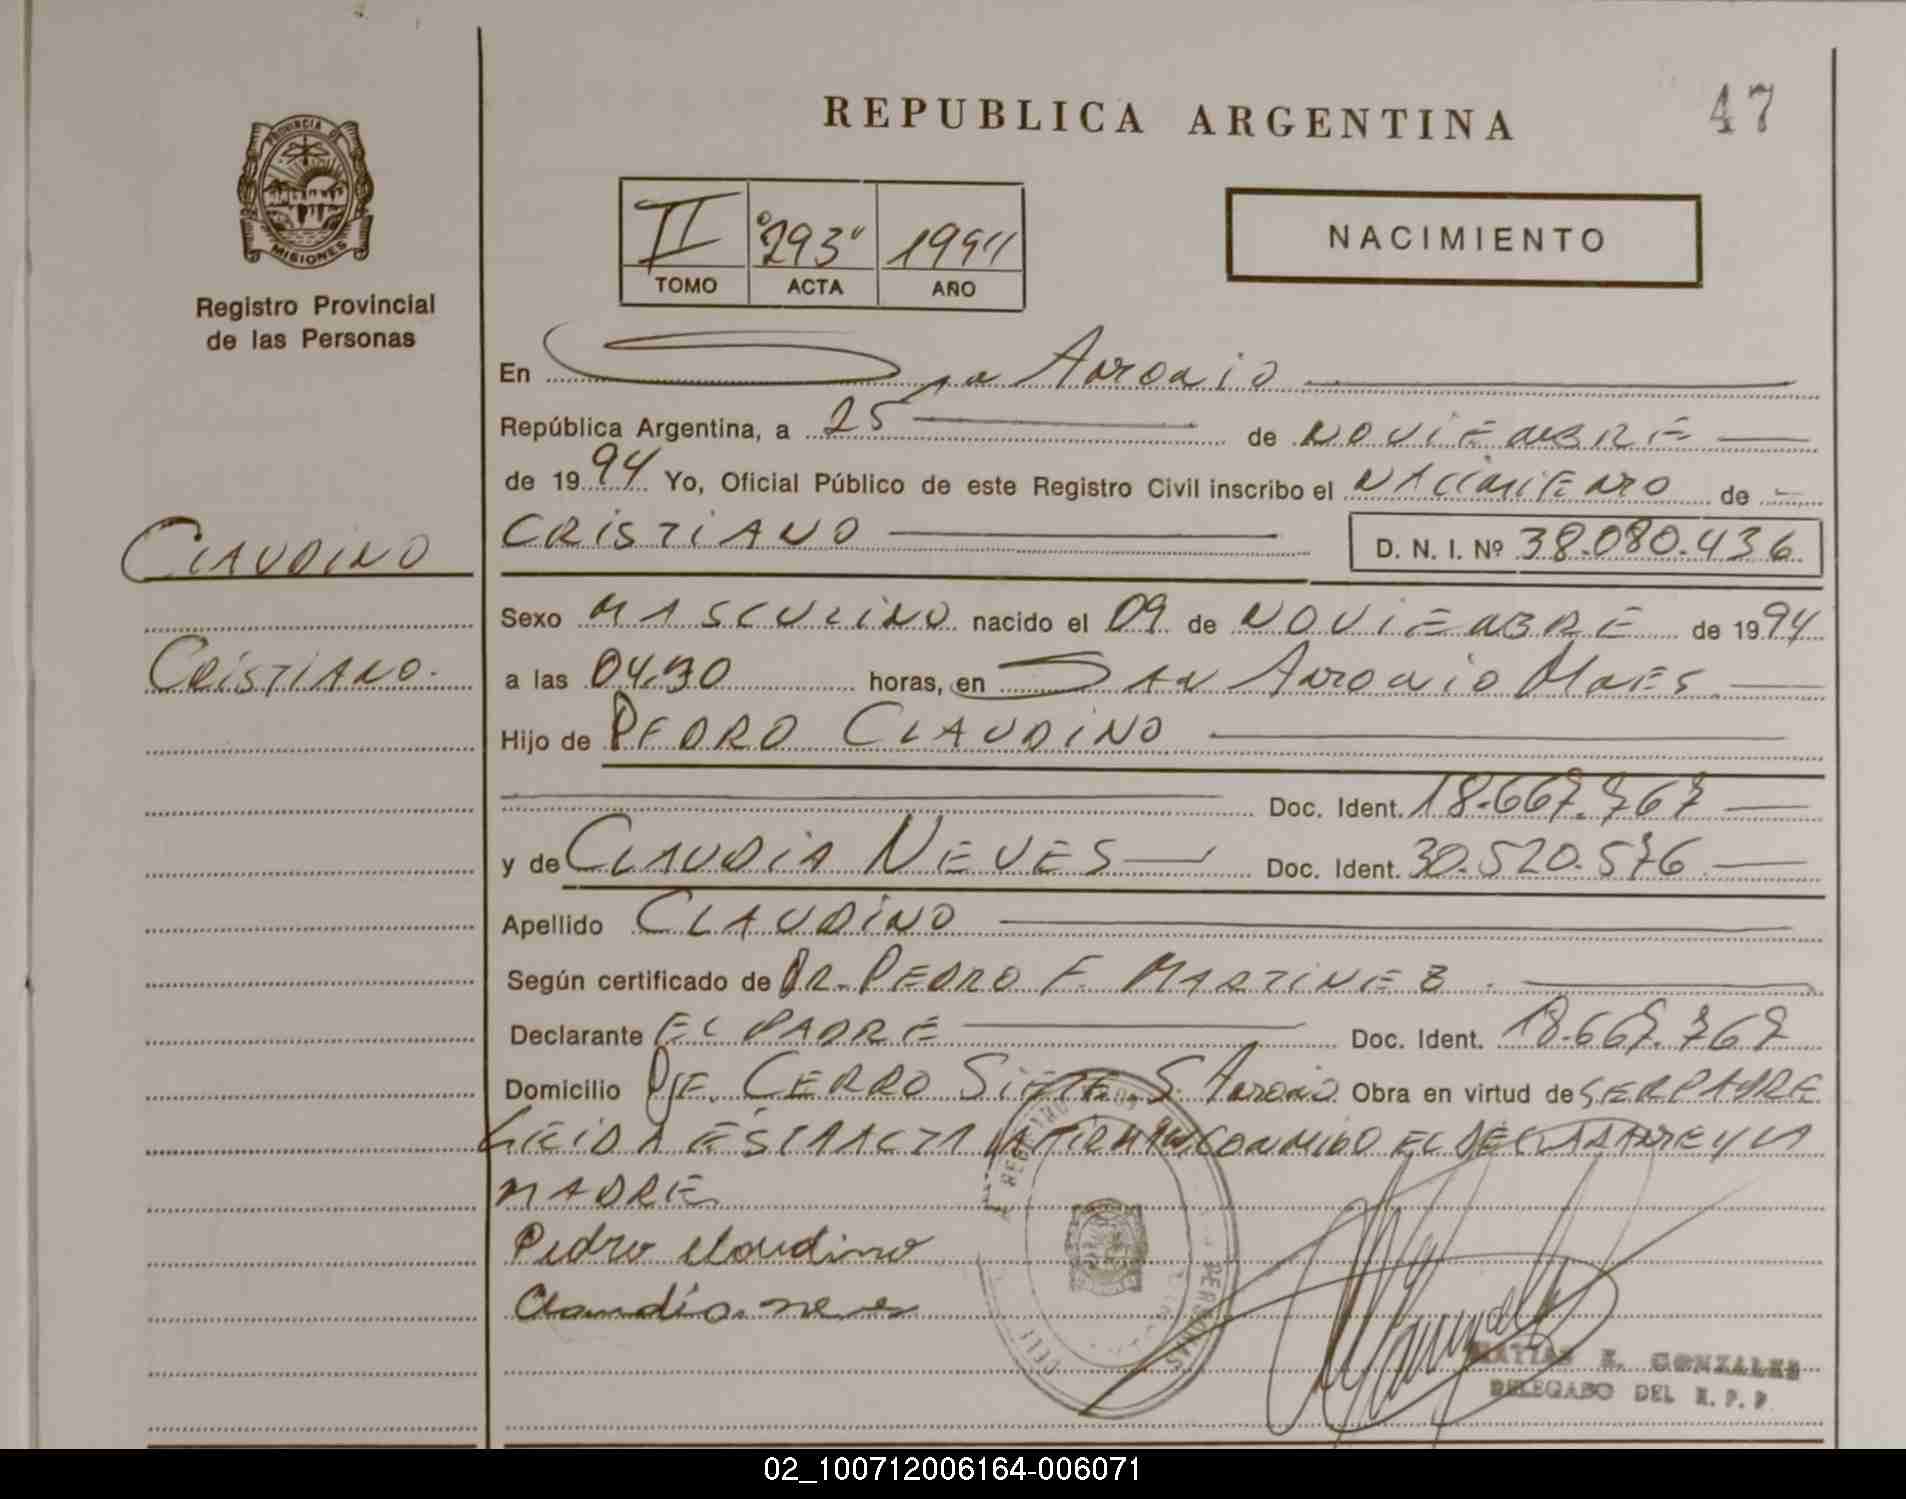 47
REPUBLICA ARGENTINA
PROVINCIA DE
MISIONES
Registro Provincial
de las Personas
II "293" 1994
TOMO ACTA AÑO
NACIMIENTO
En San Antonio
República Argentina, a 25 de NOVIEMBRE
de 1994 Yo, Oficial Público de este Registro Civil inscribo el NACIMIENTO de
CLAUDINO
CRISTIANO D. N. I. Nº 38.080.436
Sexo MASCULINO nacido el 09 de NOVIEMBRE de 1994
CRISTIANO.
a las 04,30 horas, en SAN ANTONIO MNES
Hijo de PEDRO CLAUDINO
Doc. Ident. 18.667.767
y de CLAUDIA NEVES Doc. Ident. 30.520.576
Apellido CLAUDINO
Según certificado de DR. PEDRO F. MARTINEZ
Declarante EL PADRE Doc. Ident. 18.667.767
Domicilio PJE. CERRO SIETE S. Antonio Obra en virtud de SER PADRE
LEIDA ESTA ACTA LA FIRMAN CONMIGO EL DECLARANTE Y LA
MADRE
Pedro Claudino
Claudia neves
REGISTRO
PERSONAS
MATIAS E. GONZALES
DELEGADO DEL R. P. P.
02_100712006164-006071